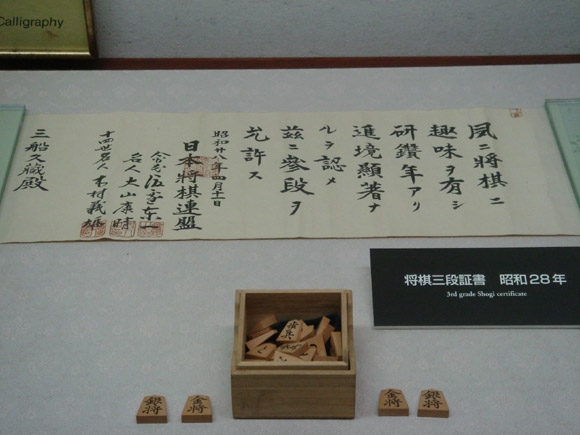 Calligraphy
夙ニ將棋ニ
趣味ヲ有シ
研鑽年アリ
進境顯著ナ
ルヲ認メ
茲ニ參段ヲ
允許ス
昭和廿八年四月十一日
日本將棋連盟
名人大山康晴
十四世名人木村義雄
三船久藏殿
将棋三段証書 昭和28年
3rd grade Shogi certificate
歩兵
銀将
金将
金将
銀将